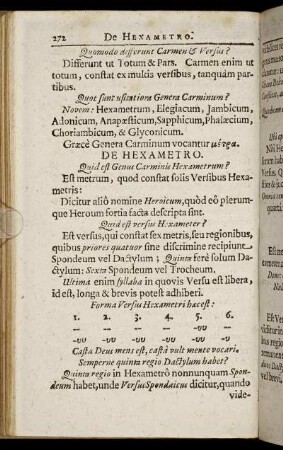 272 DE HEXAMETRO.
Quomodo differunt Carmen & Versus?
Differunt ut Totum & Pars. Carmen enim ut
totum, constat ex multis versibus, tanquàm par-
tibus.
Quot sunt usitatiora Genera Carminum?
Novem: Hexametrum, Elegiacum, Jambicum,
Adonicum, Anapæsticum, Sapphicum, Phalæcium,
Choriambicum, & Glyconicum.
Græcè Genera Carminum vocantur μέτρα.
DE HEXAMETRO.
Quid est Genus Carminis Hexametrum?
Est metrum, quod constat solis Versibus Hexa-
metris:
Dicitur aliô nomine Heroicum, quòd eô plerum-
que Heroum fortia facta descripta sint.
Quid est versus Hexameter?
Est versus, qui constat sex metris, seu regionibus,
quibus priores quatuor sine discrimine recipiunt
Spondeum vel Dactylum; Quinta ferè solum Da-
ctylum: Sexta Spondeum vel Trocheum.
Ultima enim syllaba in quovis Versu est libera,
id est, longa & brevis potest adhiberi.
Forma Versus Hexametri hac est:
1. 2. 3. 4. 5. 6.
-- -- -- -- -υυ --
-υυ -υυ -υυ -υυ -υ
Casta Deus mens est, castâ vult mente vocari.
Semperne quinta regio Dactylum habet?
Quinta regio in Hexametrô nonnunquam Spon-
deum habet, unde Versus Spondaicus dicitur, quando
vide-